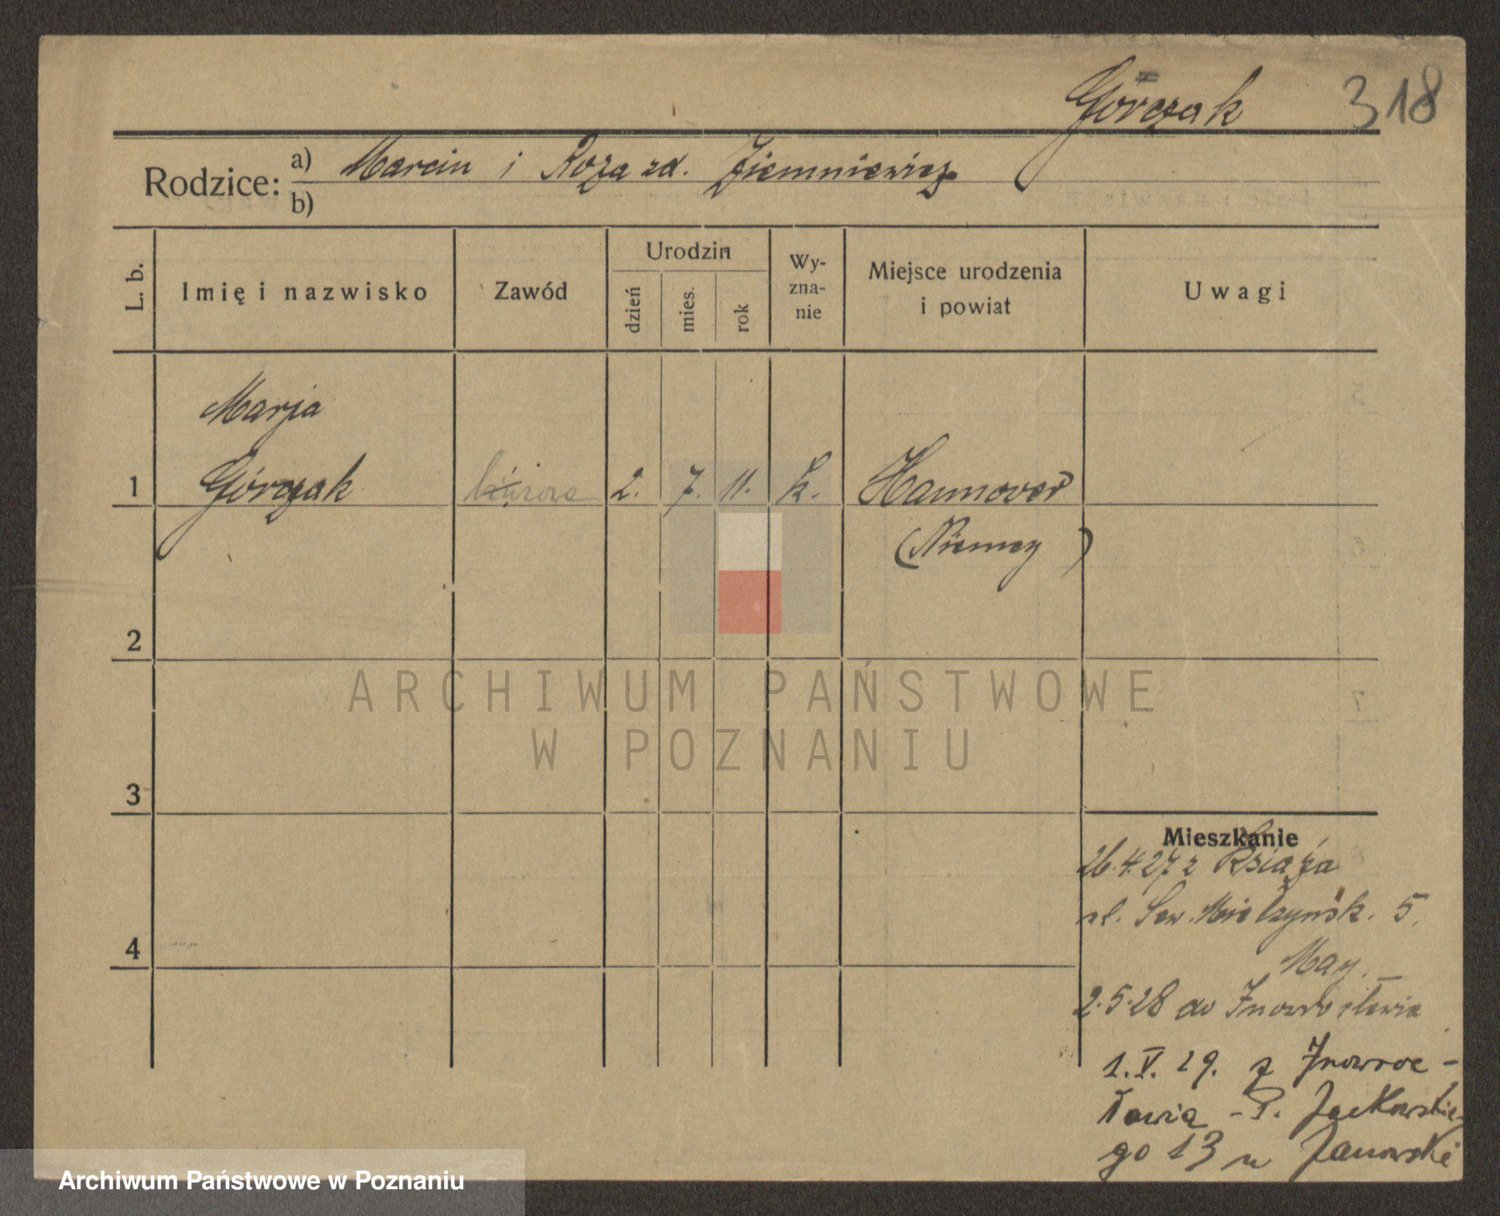 Górczak 318
Rodzice: a) Marcin i Roza zd. Ziemniewicz
b)
L. b. Imię i nazwisko Zawód Urodzin dzień mies. rok Wy-zna-nie Miejsce urodzenia i powiat Uwagi
Marja
1 Górczak 2. 7. 11. k. Hannover
(Niemcy)
2
ARCHIWUM PAŃSTWOWE
W POZNANIU
3
Mieszkanie
26.4.27 z Książa
ul. Sew. Mielżyńsk. 5.
May.
4
2.5.28 do Inowrocławia
1.V.29. z Inowroc-
ławia - P. Jackowskie-
go 13 u Janowski
Archiwum Państwowe w Poznaniu